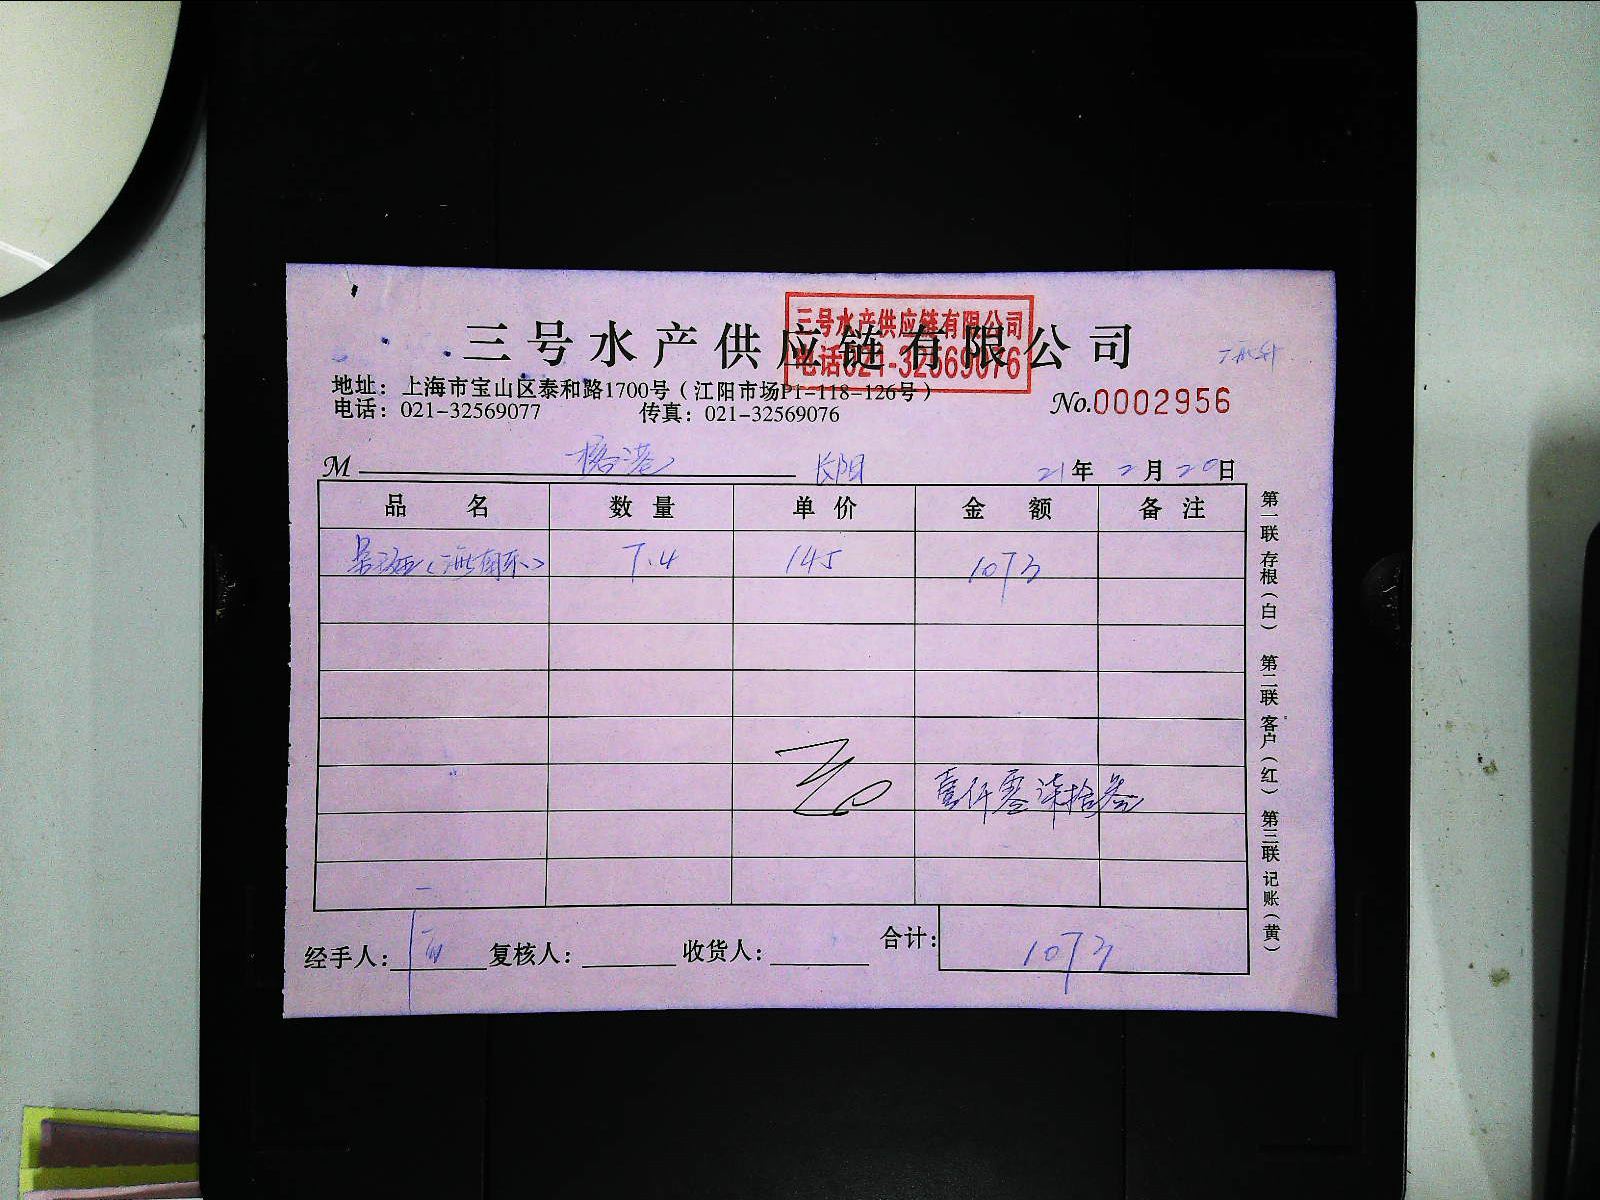 三号水产供应链有限公司
三号水产供应链有限公司
电话021-32569076
地址：上海市宝山区泰和路1700号（江阳市场P1-118-126号）
电话：021-32569077 传真：021-32569076
No.0002956
M 长阳 21年 2月 20日
品名 数量 单价 金额 备注
7.4 145 1073
壹仟零柒拾叁
经手人： 复核人： 收货人： 合计： 1073
第一联 存根（白） 第二联 客户（红） 第三联 记账（黄）